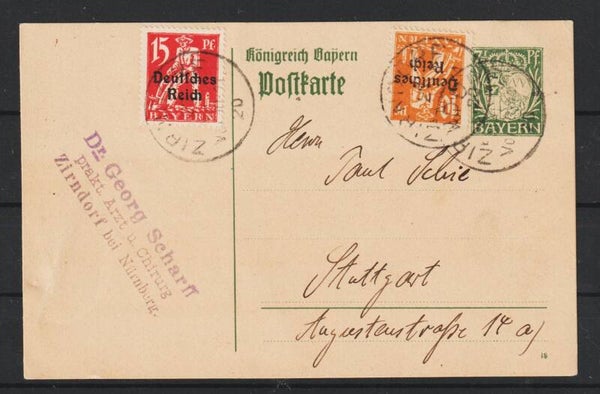 15 Pf
Deutsches
Reich
BAYERN
Königreich Bayern
Postkarte
Deutsches
Reich
10
BAYERN
20
ZIRN
Dr. Georg Scharff
prakt. Arzt u. Chirurg
Zirndorf bei Nürnberg.
Herrn
Paul Schie
Stuttgart
Augustenstraße 14 a)
18